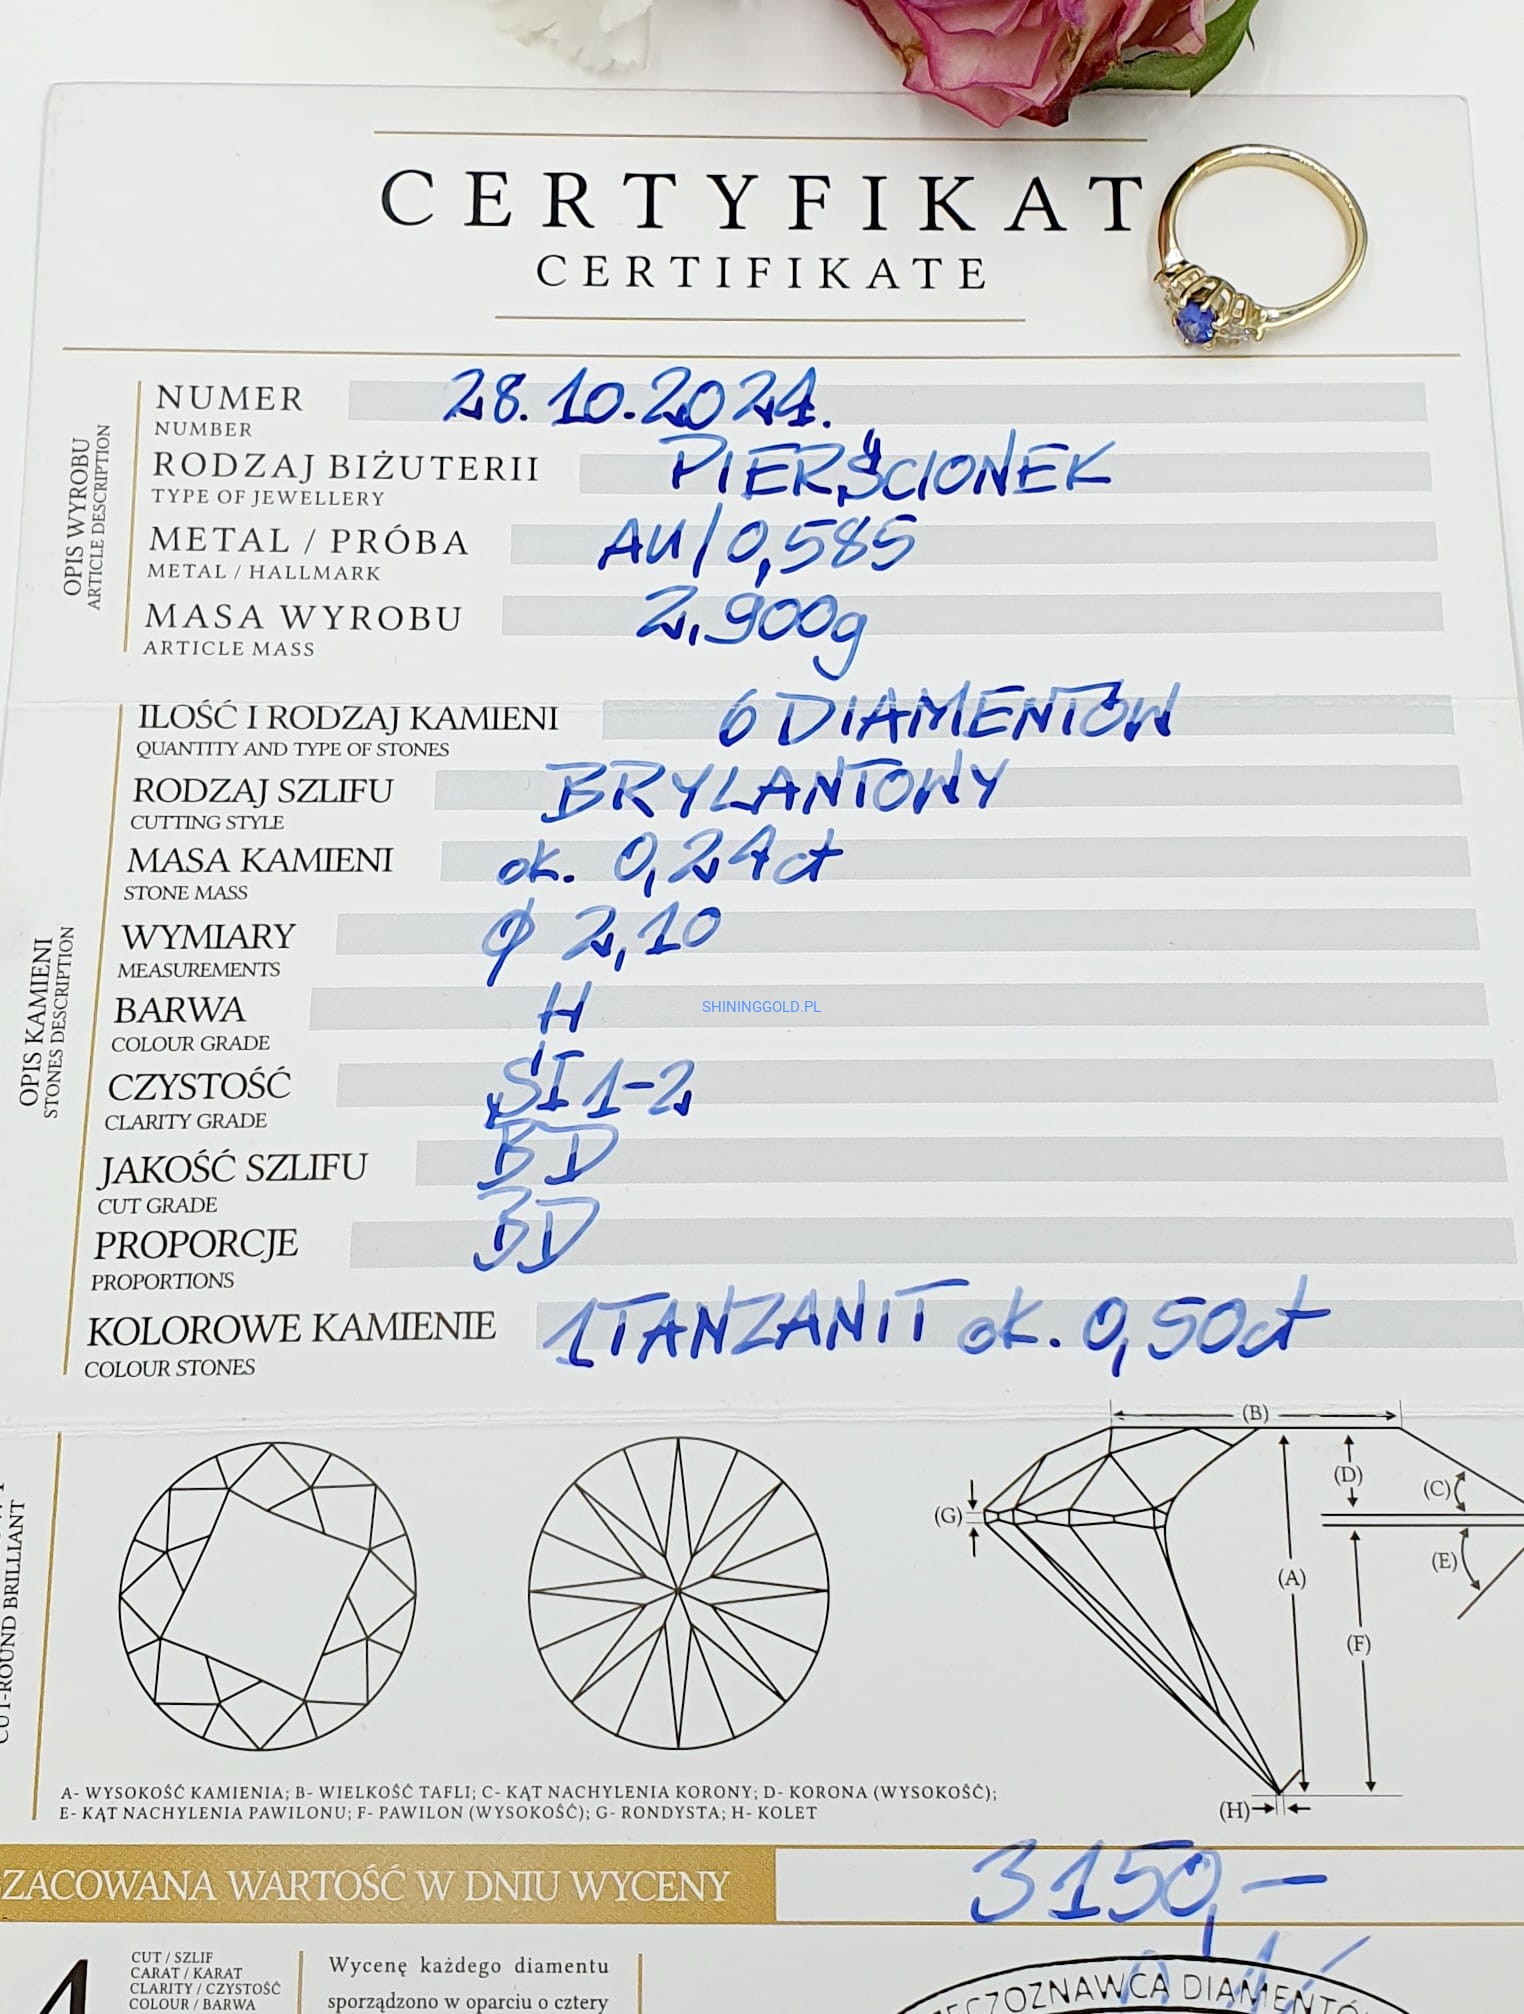 CERTYFIKAT
CERTIFIKATE
OPIS WYROBU
ARTICLE DESCRIPTION
NUMER 28.10.2024.
NUMBER
RODZAJ BIŻUTERII PIERŚCIONEK
TYPE OF JEWELLERY
METAL / PRÓBA AU/0,585
METAL / HALLMARK
MASA WYROBU 2,900g
ARTICLE MASS
OPIS KAMIENI
STONES DESCRIPTION
ILOŚĆ I RODZAJ KAMIENI 6 DIAMENTÓW
QUANTITY AND TYPE OF STONES
RODZAJ SZLIFU BRYLANTOWY
CUTTING STYLE
MASA KAMIENI ok. 0,24ct
STONE MASS
WYMIARY φ 2,10
MEASUREMENTS
BARWA H
COLOUR GRADE
SHININGGOLD.PL
CZYSTOŚĆ SI 1-2
CLARITY GRADE
JAKOŚĆ SZLIFU BD
CUT GRADE
PROPORCJE BD
PROPORTIONS
KOLOROWE KAMIENIE 1 TANZANIT ok. 0,50ct
COLOUR STONES
CUT-ROUND BRILLIANT
(B)
(D)
(C)
(G)
(E)
(A)
(F)
(H)
A- WYSOKOŚĆ KAMIENIA; B- WIELKOŚĆ TAFLI; C- KĄT NACHYLENIA KORONY; D- KORONA (WYSOKOŚĆ);
E- KĄT NACHYLENIA PAWILONU; F- PAWILON (WYSOKOŚĆ); G- RONDYSTA; H- KOLET
ZACOWANA WARTOŚĆ W DNIU WYCENY 3150,-
4
CUT / SZLIF
CARAT / KARAT
CLARITY / CZYSTOŚĆ
COLOUR / BARWA
Wycenę każdego diamentu
sporządzono w oparciu o cztery
ZECZOZNAWCA DIAMENTÓ